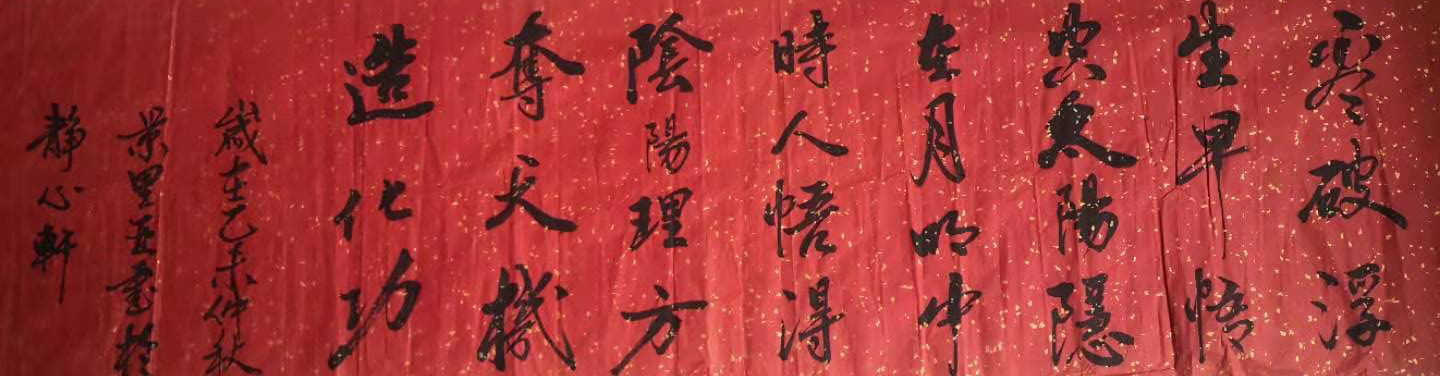 看破浮
生早悟
空太陽隱
在月明中
時人悟得
陰陽理方
奪天機
造化功
歲在乙未仲秋
景里書於
靜心軒